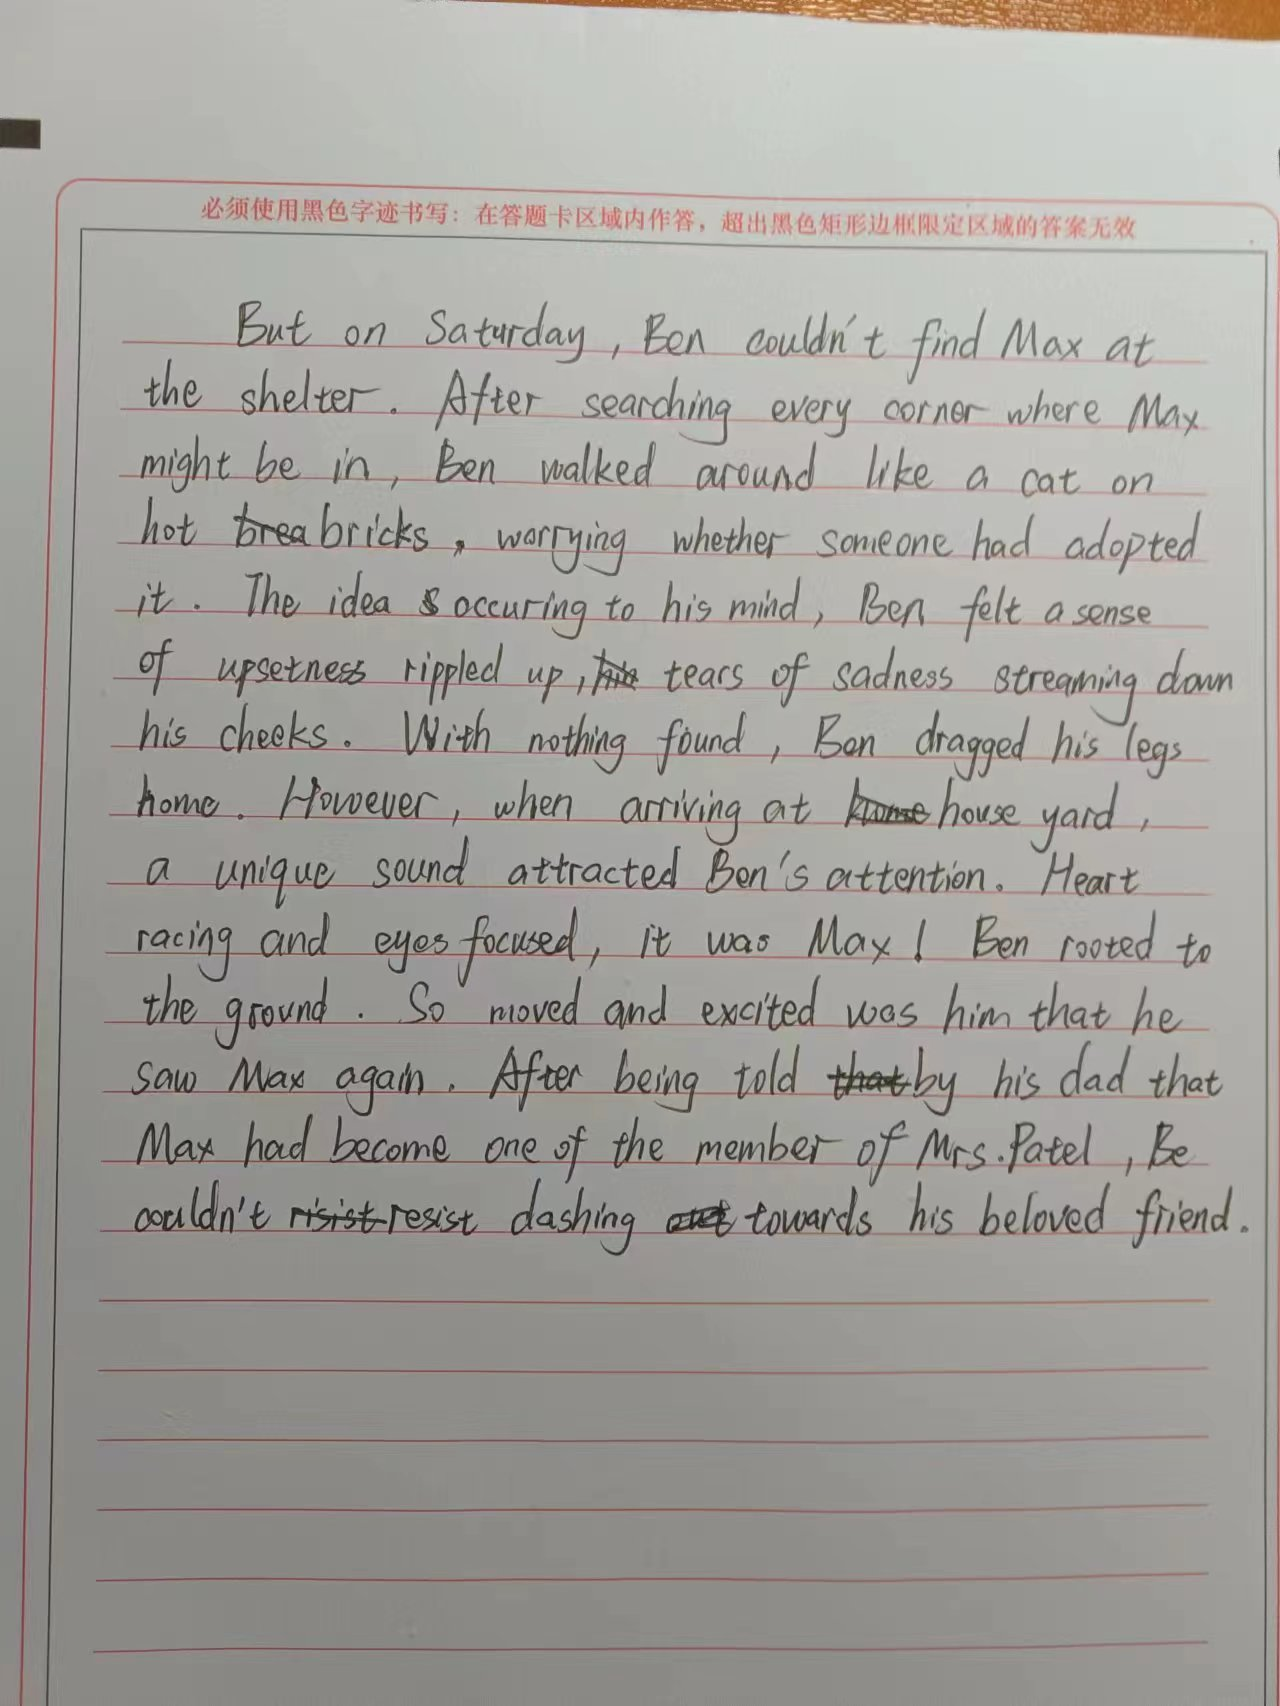 必须使用黑色字迹书写：在答题卡区域内作答，超出黑色矩形边框限定区域的答案无效
But on Saturday, Ben couldn't find Max at
the shelter. After searching every corner where Max
might be in, Ben walked around like a cat on
hot brea bricks, worrying whether someone had adopted
it. The idea s occuring to his mind, Ben felt a sense
of upsetness rippled up, tears of sadness streaming down
his cheeks. With nothing found, Ben dragged his legs
home. However, when arriving at home house yard,
a unique sound attracted Ben's attention. Heart
racing and eyes focused, it was Max! Ben rooted to
the ground. So moved and excited was him that he
saw Max again. After being told that by his dad that
Max had become one of the member of Mrs. Patel, Be
couldn't risist resist dashing towards his beloved friend.